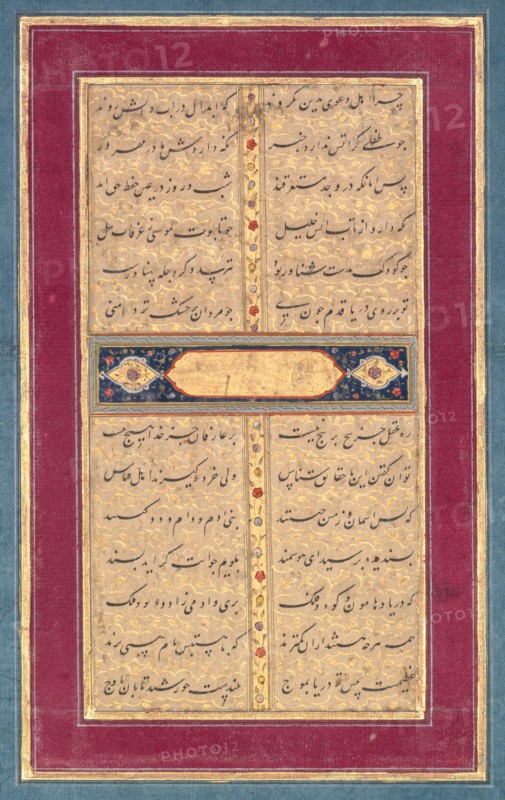 چرا اهل دعوی بدین نگروند که ابدال در آب و آتش روند
چو طفلی کز آتش ندارد خبر نگه داردش مادر مهرور
پس آنانکه در وجد مستغرقند شب و روز در عین حفظ حق اند
نگه دارد از تاب آتش خلیل چو تابوت موسی ز غرقاب نیل
چو کودک بدست شناور بود نترسد وگر دجله پهناورست
تو بر روی دریا قدم چون زنی چو مردان که بر خشک تر دامنی
ره عقل جز پیچ بر پیچ نیست بر عارفان جز خدا هیچ نیست
توان گفتن این با حقایق شناس ولی خرده گیرند اهل قیاس
که پس آسمان و زمین چیستند بنی آدم و دام و دد کیستند
پسندیده پرسیدی ای هوشمند بگویم جوابت گر آید پسند
که دریا و هامون و کوه و فلک پری و آدمی زاد و دیو و ملک
همه هرچه هستند از آن کمترند که با هستیش نام هستی برند
عظیمست پیش تو دریا بموج بلندست خورشید تابان باوج
PHOTO12